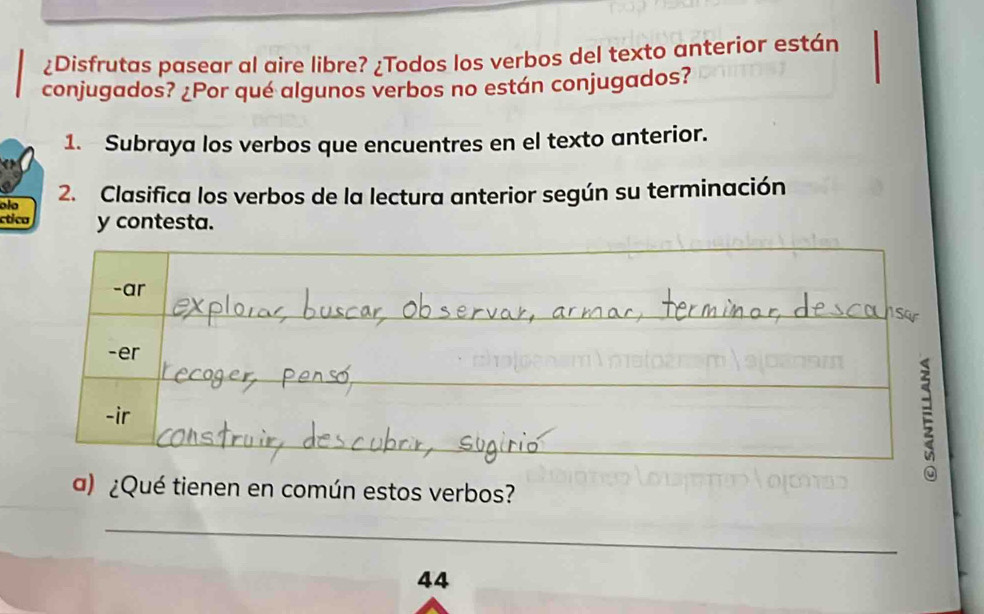 ¿Disfrutas pasear al aire libre? ¿Todos los verbos del texto anterior están
conjugados? ¿Por qué algunos verbos no están conjugados?
1. Subraya los verbos que encuentres en el texto anterior.
2. Clasifica los verbos de la lectura anterior según su terminación
y contesta.
olo
ctica
-ar
explorar, buscar, observar, armar, terminar, descansar
-er
recoger, pensó,
-ir
construir, descubrir, sugirió
a) ¿Qué tienen en común estos verbos?
© SANTILLANA
44